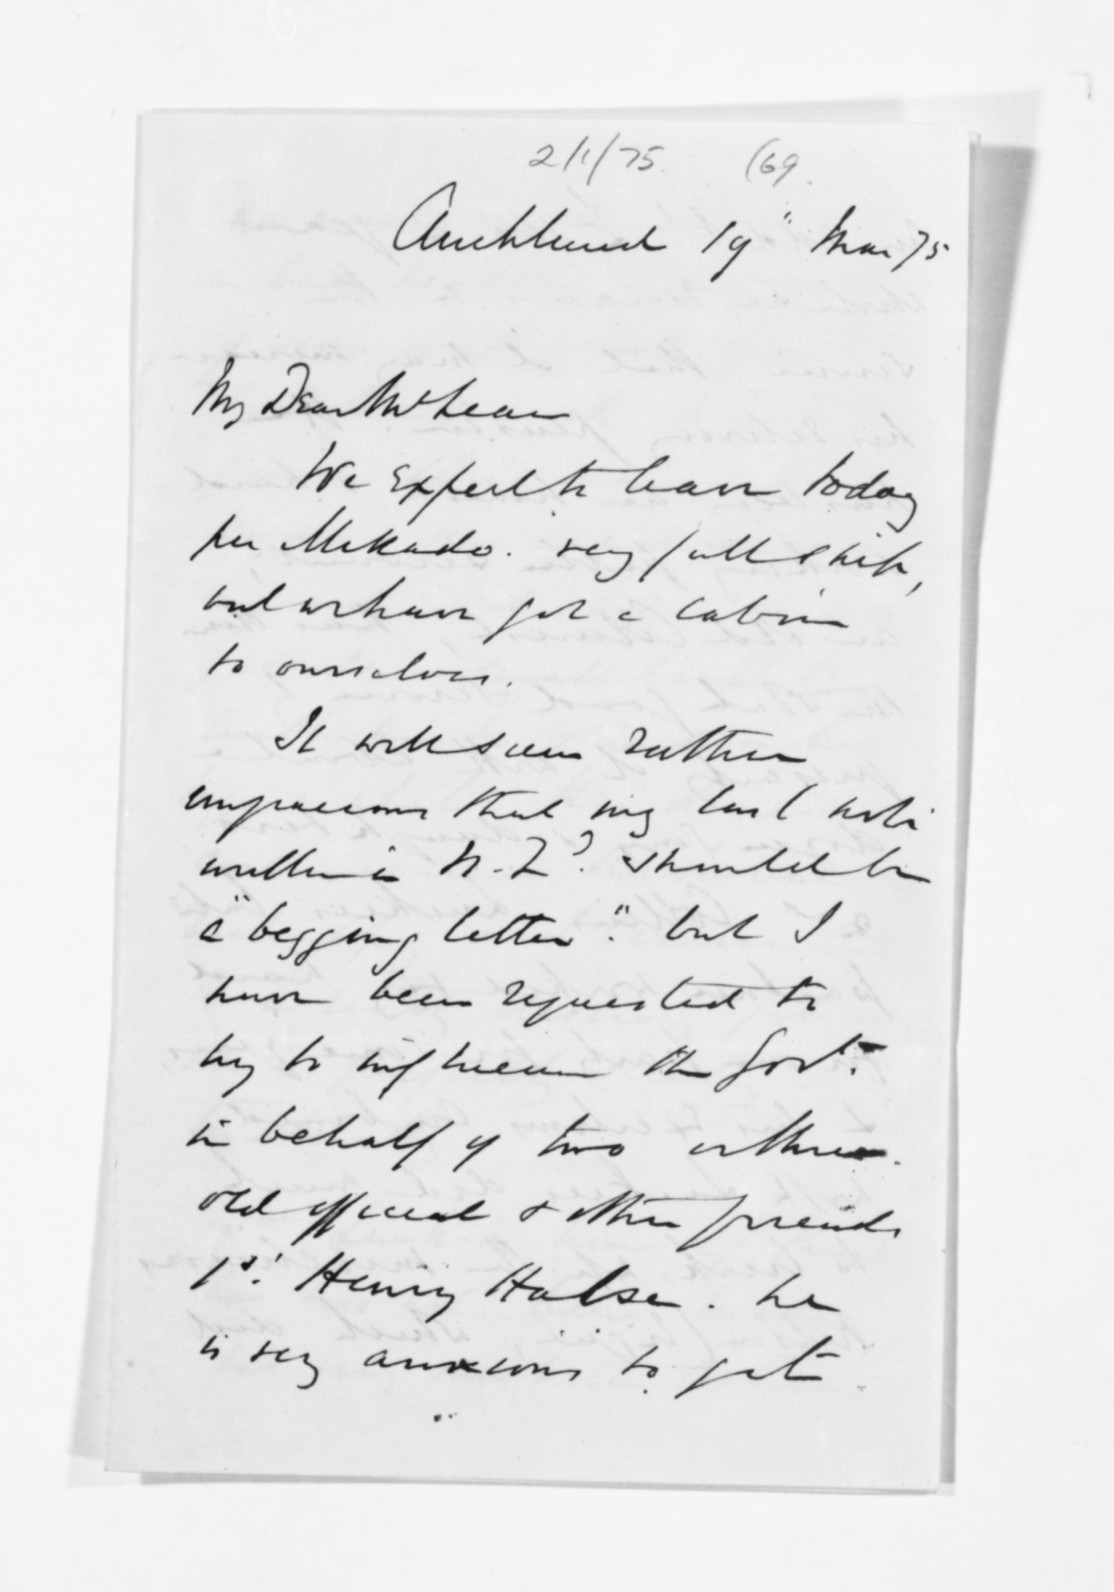 2/1/75 (69.
Auckland 19" Mar 75
My Dear McLean
We expect to leave today
per Mikado. very full ship,
but we have got a cabin
to ourselves.
It will seem rather
ungracious that my last note
written in N.Zd. should be
a "begging letter". but I
have been requested to
try to influence the Govt.
in behalf of two or three
old official & other friends
1st. Henry Halse. he
is very anxious to get